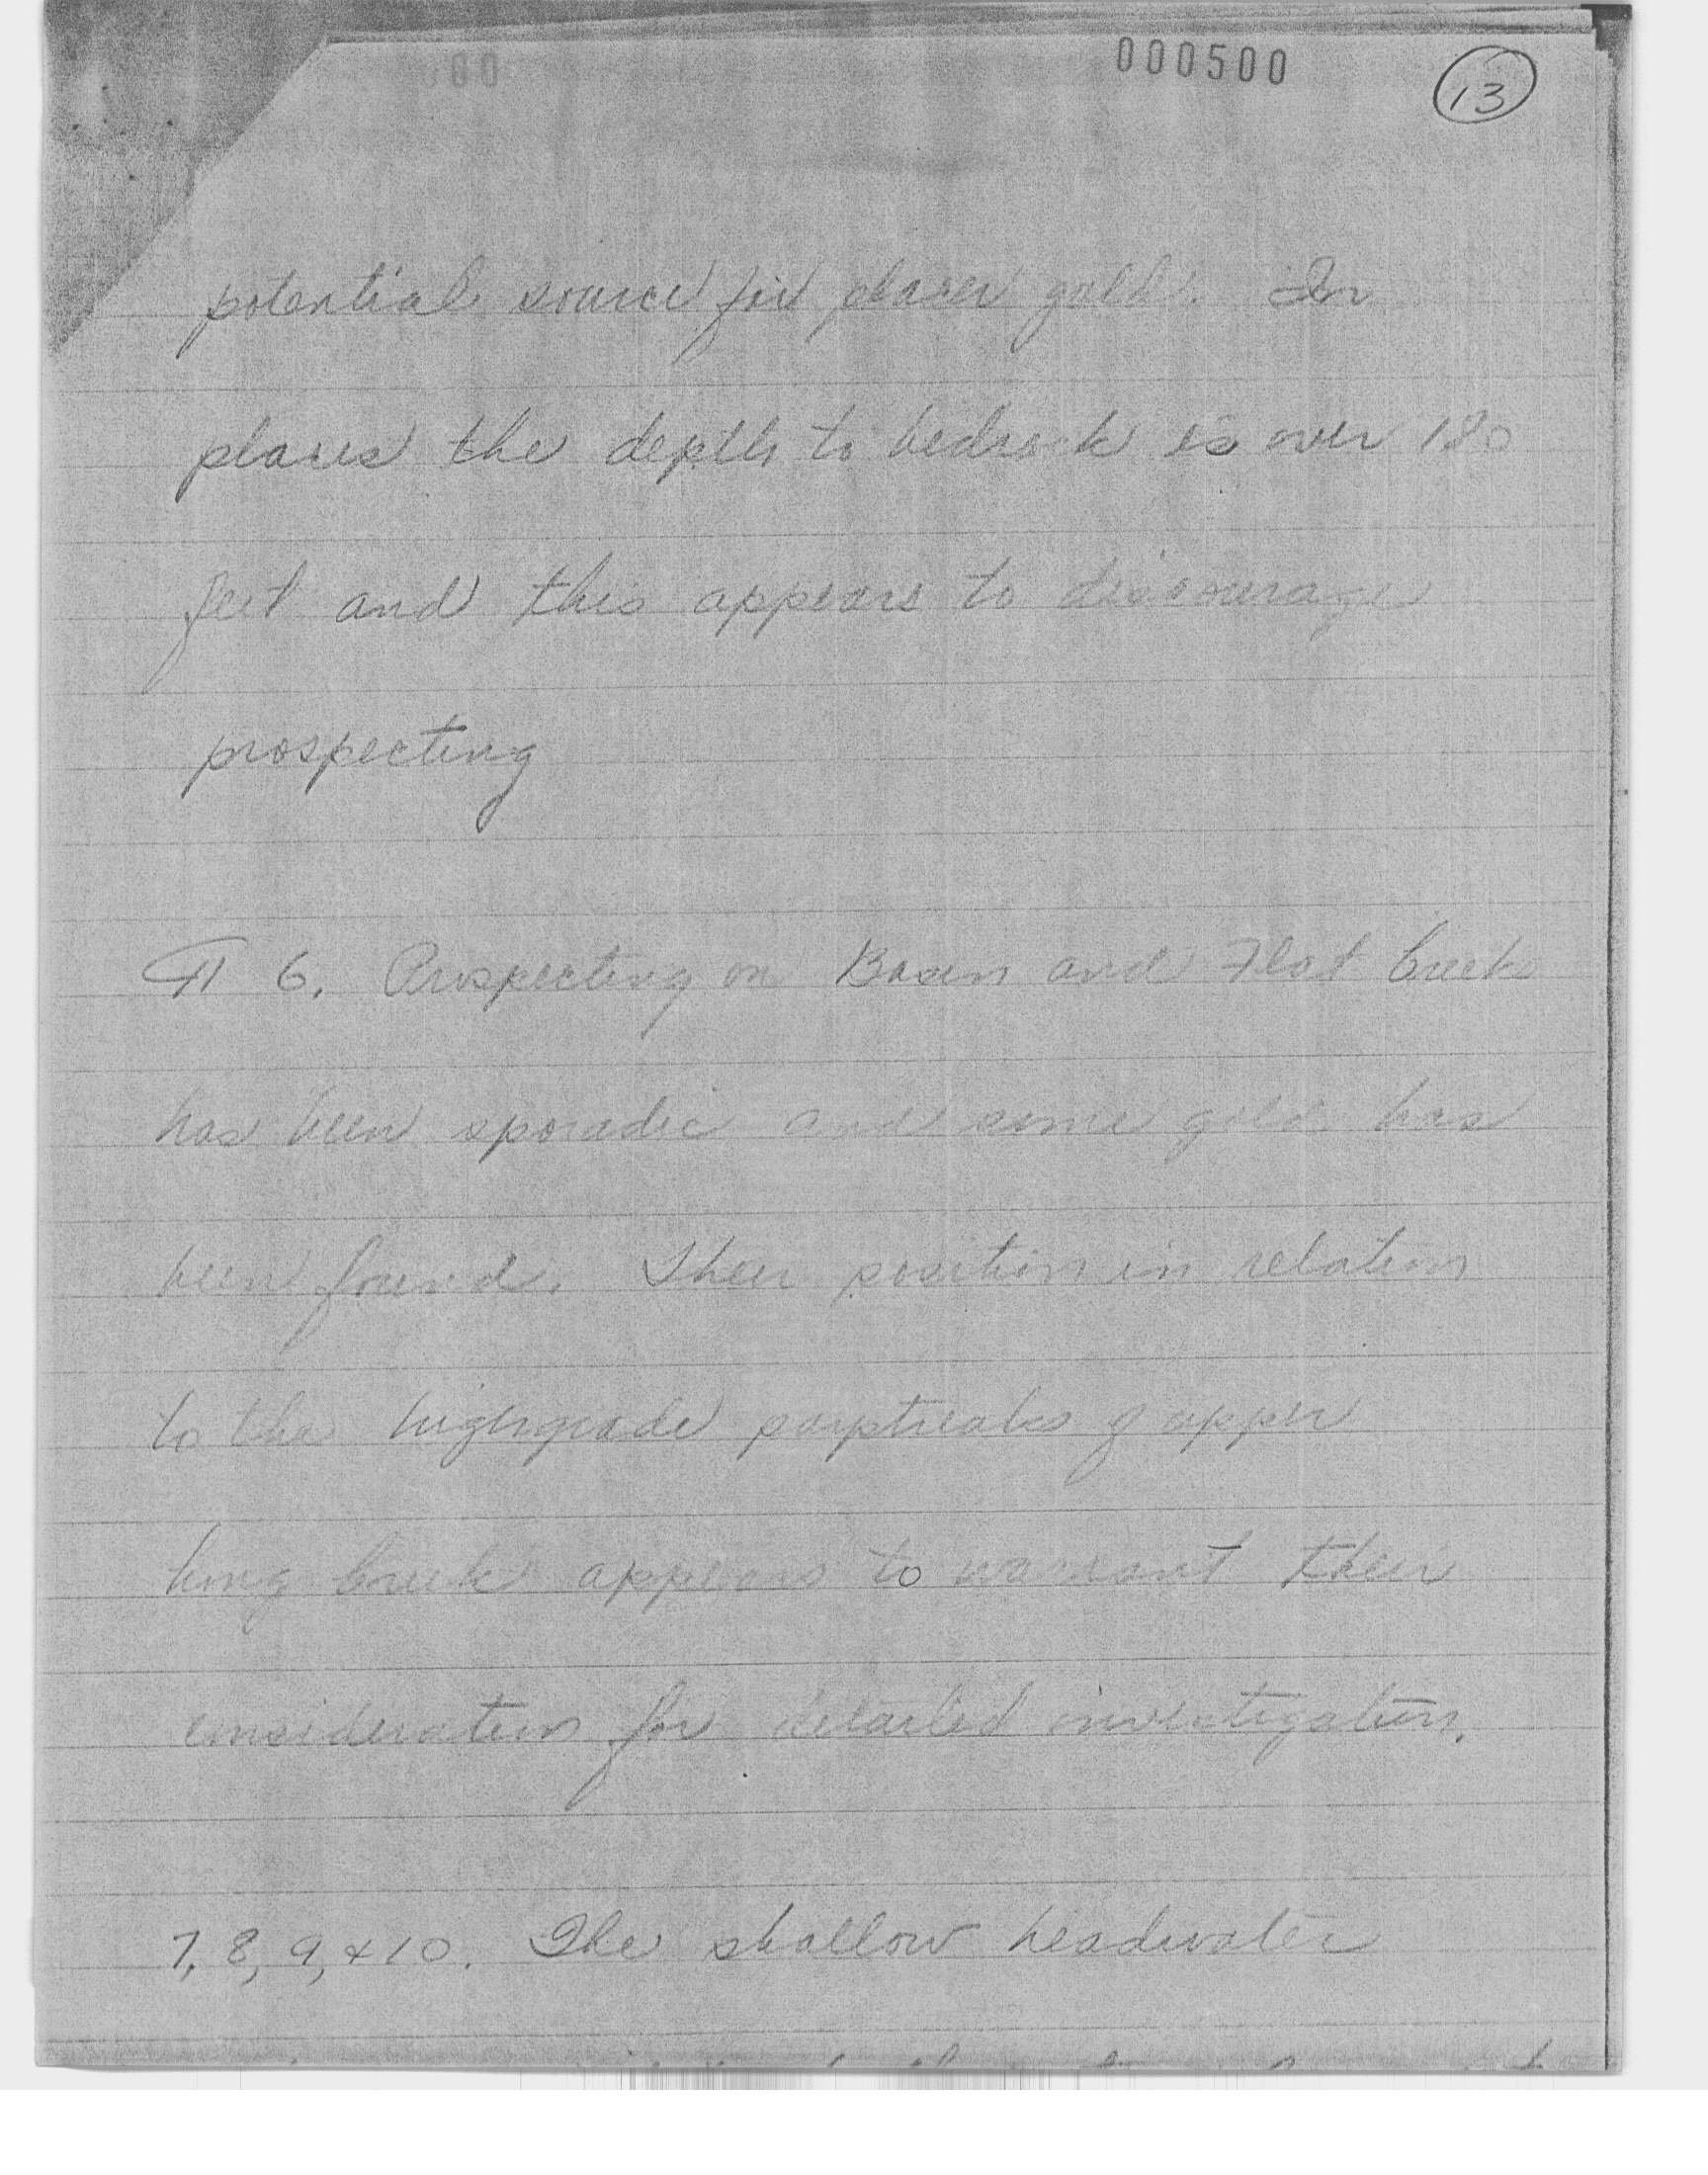 000500
13
potential source for placer gold. In
places the depth to bedrock is over 180
feet and this appears to discourage
prospecting
¶ 6. Prospecting on Basin and Flat Creek
has been sporadic and some gold has
been found. Their position in relation
to the highgrade paystreaks of upper
Long Creek appears to warrant their
consideration for detailed investigation.
7, 8, 9, & 10. The shallow headwater